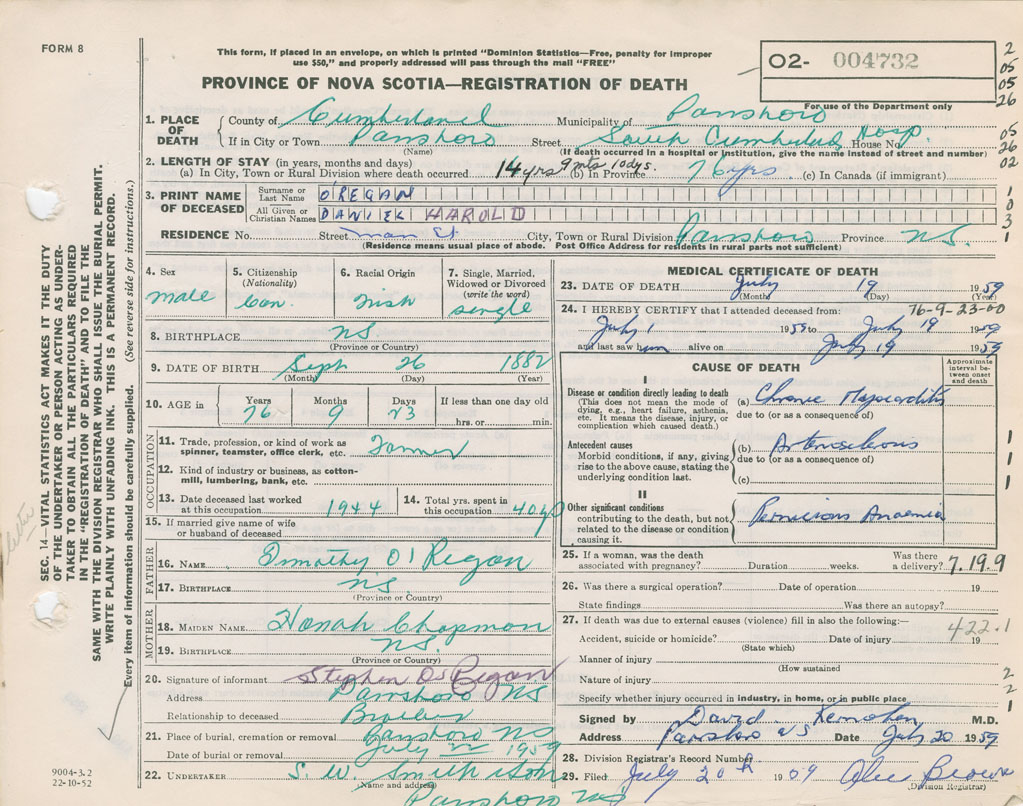 FORM 8
This form, if placed in an envelope, on which is printed "Dominion Statistics—Free, penalty for improper
use $50," and properly addressed will pass through the mail "FREE"
PROVINCE OF NOVA SCOTIA—REGISTRATION OF DEATH
02- 004732
For use of the Department only
2
05
05
26
05
26
02
1
0
3
1
1. PLACE OF DEATH County of Cumberland Municipality of Parrsboro
If in City or Town Parrsboro Street South Cumberland Hosp. House No.
(Name) (If death occurred in a hospital or institution, give the name instead of street and number)
2. LENGTH OF STAY (in years, months and days)
(a) In City, Town or Rural Division where death occurred 14 yrs 9 mts 10 dys. (b) In Province 76 yrs (c) In Canada (if immigrant)
3. PRINT NAME OF DECEASED Surname or Last Name OREGAN
All Given or Christian Names DANIEL HAROLD
RESIDENCE No. Street Main St. City, Town or Rural Division Parrsboro Province N.S.
(Residence means usual place of abode. Post Office Address for residents in rural parts not sufficient)
SEC. 14—VITAL STATISTICS ACT MAKES IT THE DUTY
OF THE UNDERTAKER OR PERSON ACTING AS UNDER-
TAKER TO OBTAIN ALL THE PARTICULARS REQUIRED
IN THE "REGISTRATION OF DEATH" AND TO FILE THE
SAME WITH THE DIVISION REGISTRAR WHO SHALL ISSUE THE BURIAL PERMIT.
WRITE PLAINLY WITH UNFADING INK. THIS IS A PERMANENT RECORD.
Every item of information should be carefully supplied. (See reverse side for instructions.)
4. Sex
male
5. Citizenship
(Nationality)
Can.
6. Racial Origin
Irish
7. Single, Married,
Widowed or Divorced
(write the word)
single
8. BIRTHPLACE NS
(Province or Country)
9. DATE OF BIRTH Sept 26 1882
(Month) (Day) (Year)
10. AGE in Years Months Days If less than one day old
76 9 23 hrs. or min.
OCCUPATION
11. Trade, profession, or kind of work as
spinner, teamster, office clerk, etc. Farmer
12. Kind of industry or business, as cotton-
mill, lumbering, bank, etc.
13. Date deceased last worked
at this occupation 1944
14. Total yrs. spent in
this occupation 40 yrs
15. If married give name of wife
or husband of deceased
FATHER
16. NAME Timothy O'Regan
17. BIRTHPLACE N.S.
(Province or Country)
MOTHER
18. MAIDEN NAME Honah Chapman
19. BIRTHPLACE N.S.
(Province or Country)
20. Signature of informant Stephen O'Regan
Address Parrsboro NS
Relationship to deceased Brother
21. Place of burial, cremation or removal Parrsboro NS
Date of burial or removal July 22 1959
22. UNDERTAKER S. W. Smith & Son
(Name and address)
Parrsboro NS
9004-3.2
22-10-52
MEDICAL CERTIFICATE OF DEATH
23. DATE OF DEATH July 19 1959
(Month) (Day) (Year)
76-9-23-00
24. I HEREBY CERTIFY that I attended deceased from:
July 1 1959 to July 19 1959
and last saw him alive on July 19 1959
CAUSE OF DEATH
Approximate
interval be-
tween onset
and death
I
Disease or condition directly leading to death
(This does not mean the mode of
dying, e.g., heart failure, asthenia,
etc. It means the disease, injury, or
complication which caused death.)
(a) Chronic Myocarditis
due to (or as a consequence of)
Antecedent causes
Morbid conditions, if any, giving
rise to the above cause, stating the
underlying condition last.
(b) Arteriosclerosis
due to (or as a consequence of)
(c)
1
1
1
II
Other significant conditions
contributing to the death, but not
related to the disease or condition
causing it.
Pernicious Anaemia
25. If a woman, was the death
associated with pregnancy? Duration weeks. Was there
a delivery?
7.19.9
26. Was there a surgical operation? Date of operation 19
State findings Was there an autopsy?
27. If death was due to external causes (violence) fill in also the following:—
422.1
Accident, suicide or homicide? Date of injury 19
(State which)
Manner of injury
(How sustained
Nature of injury
Specify whether injury occurred in industry, in home, or in public place
2
2
1
Signed by David M.D.
Address Parrsboro NS Date July 20 1959
28. Division Registrar's Record Number
29. Filed July 20th 1959 Brown
(Division Registrar)